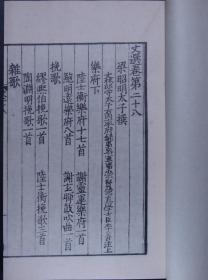 文選卷第二十八
梁昭明太子撰
樂府下
陸士衡樂府十七首
謝靈運樂府一首
鮑明遠樂府八首
謝玄暉鼓吹曲一首
挽歌
繆熙伯挽歌一首
陸士衡挽歌三首
陶淵明挽歌一首
雜歌